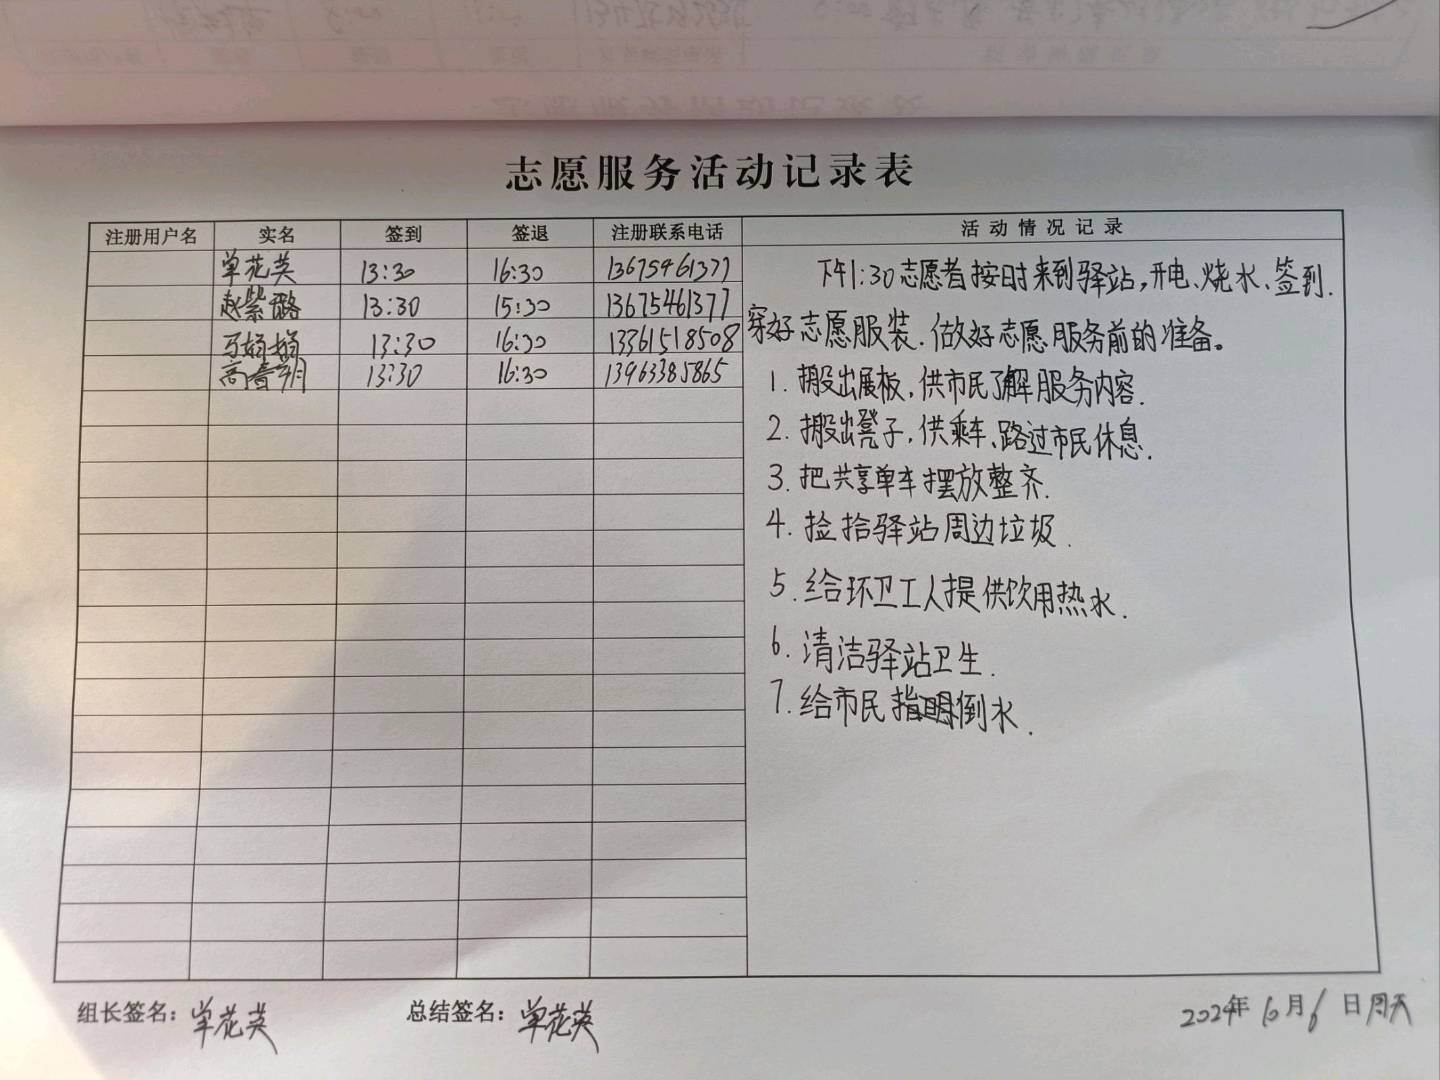 志愿服务活动记录表
注册用户名 实名 签到 签退 注册联系电话 活动情况记录
单花英 13:30 16:30 13675461377
赵紫璐 13:30 15:30 13675461377
13:30 16:30 13361518508
高春玥 13:30 16:30 13963385865
下午1:30志愿者按时来到驿站,开电、烧水、签到.
穿好志愿服装.做好志愿服务前的准备。
1. 搬出展板,供市民了解服务内容.
2. 搬出凳子,供乘车、路过市民休息.
3. 把共享单车摆放整齐.
4. 捡拾驿站周边垃圾.
5. 给环卫工人提供饮用热水.
6. 清洁驿站卫生.
7. 给市民指明倒水.
组长签名:单花英 总结签名:单花英 2024年10月6日周天